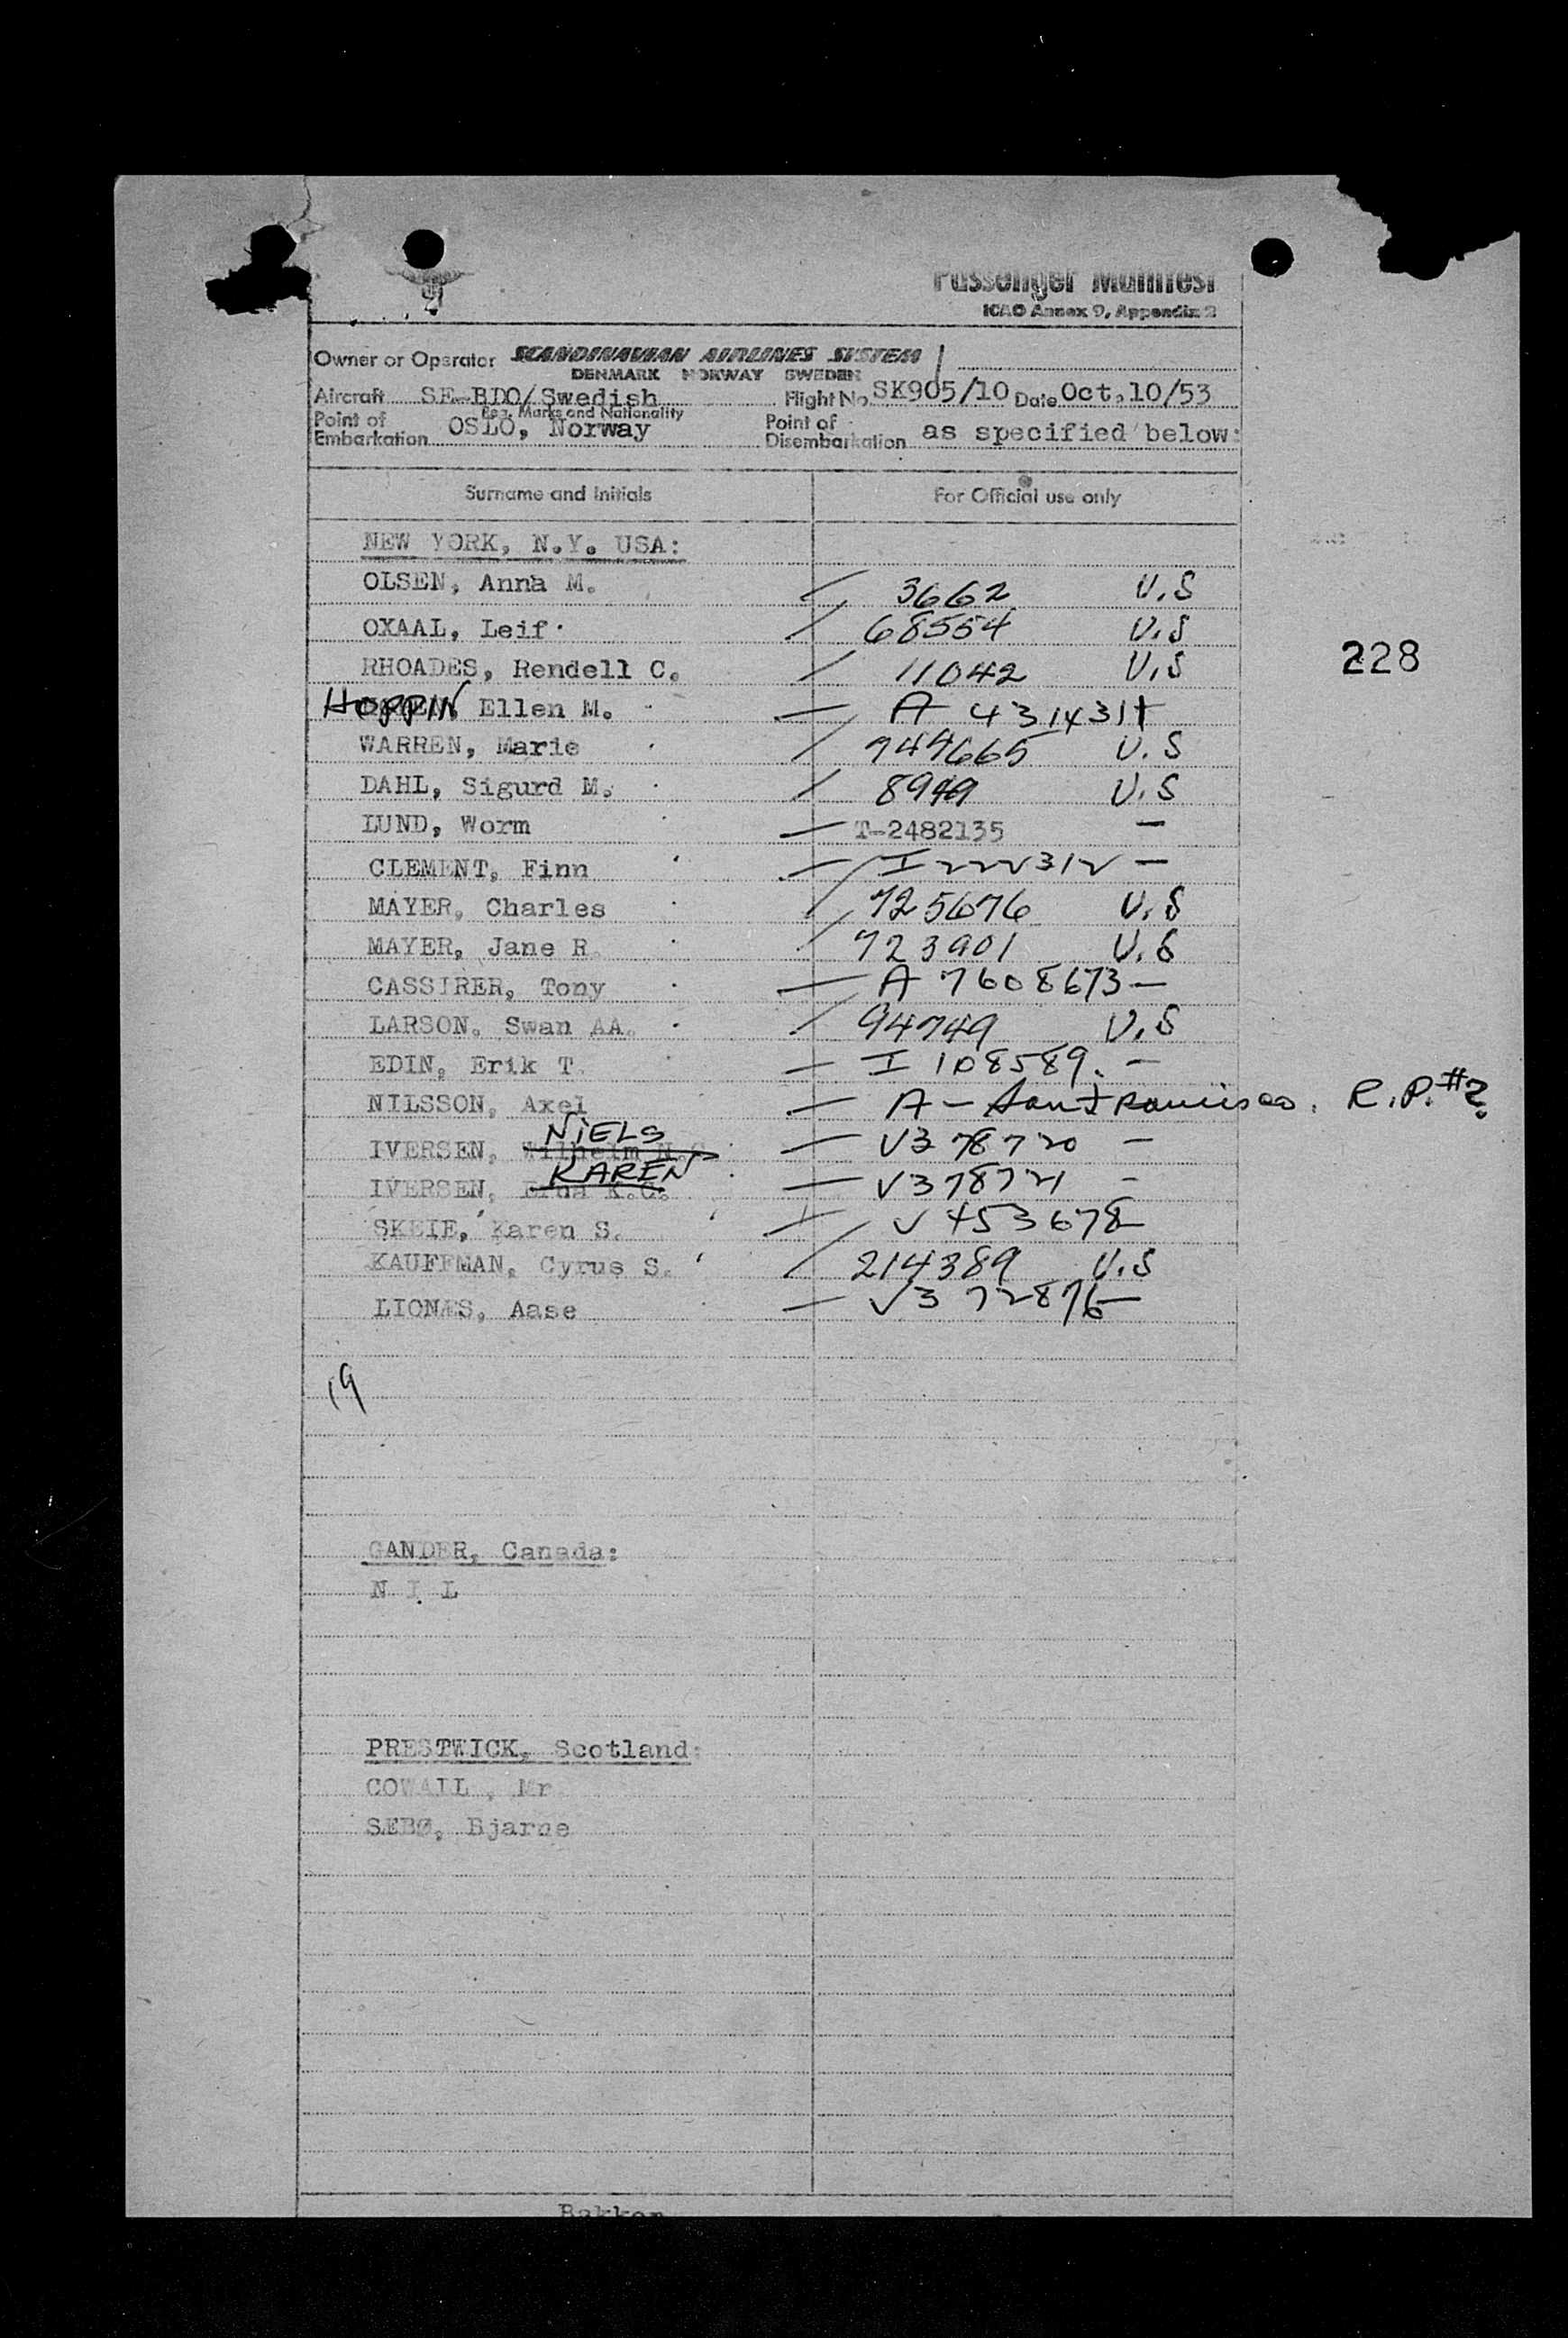 Passenger Manifest
ICAO Annex 9, Appendix 2
Owner or Operator SCANDINAVIAN AIRLINES SYSTEM
DENMARK NORWAY SWEDEN
Aircraft SE-BDO/Swedish Flight No. SK905/10 Date Oct. 10/53
Reg. Marks and Nationality
Point of Embarkation OSLO, Norway Point of Disembarkation as specified below:
Surname and Initials For Official use only
NEW YORK, N.Y. USA:
OLSEN, Anna M. 3662 U.S
OXAAL, Leif 68554 U.S
228
RHOADES, Rendell C. 11042 U.S
HOPPIN, Ellen M. A
WARREN, Marie U.S
DAHL, Sigurd M. U.S
LUND, Worm T-2482135 —
CLEMENT, Finn I 222312 —
MAYER, Charles 725676 U.S
MAYER, Jane R. 723901 U.S
CASSIRER, Tony A 7608673 —
LARSON, Swan AA. 94749 U.S
EDIN, Erik T. I 108589. —
NILSSON, Axel A - San Francisco. R.P. #2
NIELS
IVERSEN, V378720 —
KAREN
IVERSEN, Erna K.C. V378721 —
SKEIE, Karen S. V 453678
KAUFFMAN, Cyrus S. 214389 U.S
LIONÆS, Aase V372876
19
GANDER, Canada:
N I L
PRESTWICK, Scotland:
COWAIL, Mr
SEBØ, Bjarne
Bakken